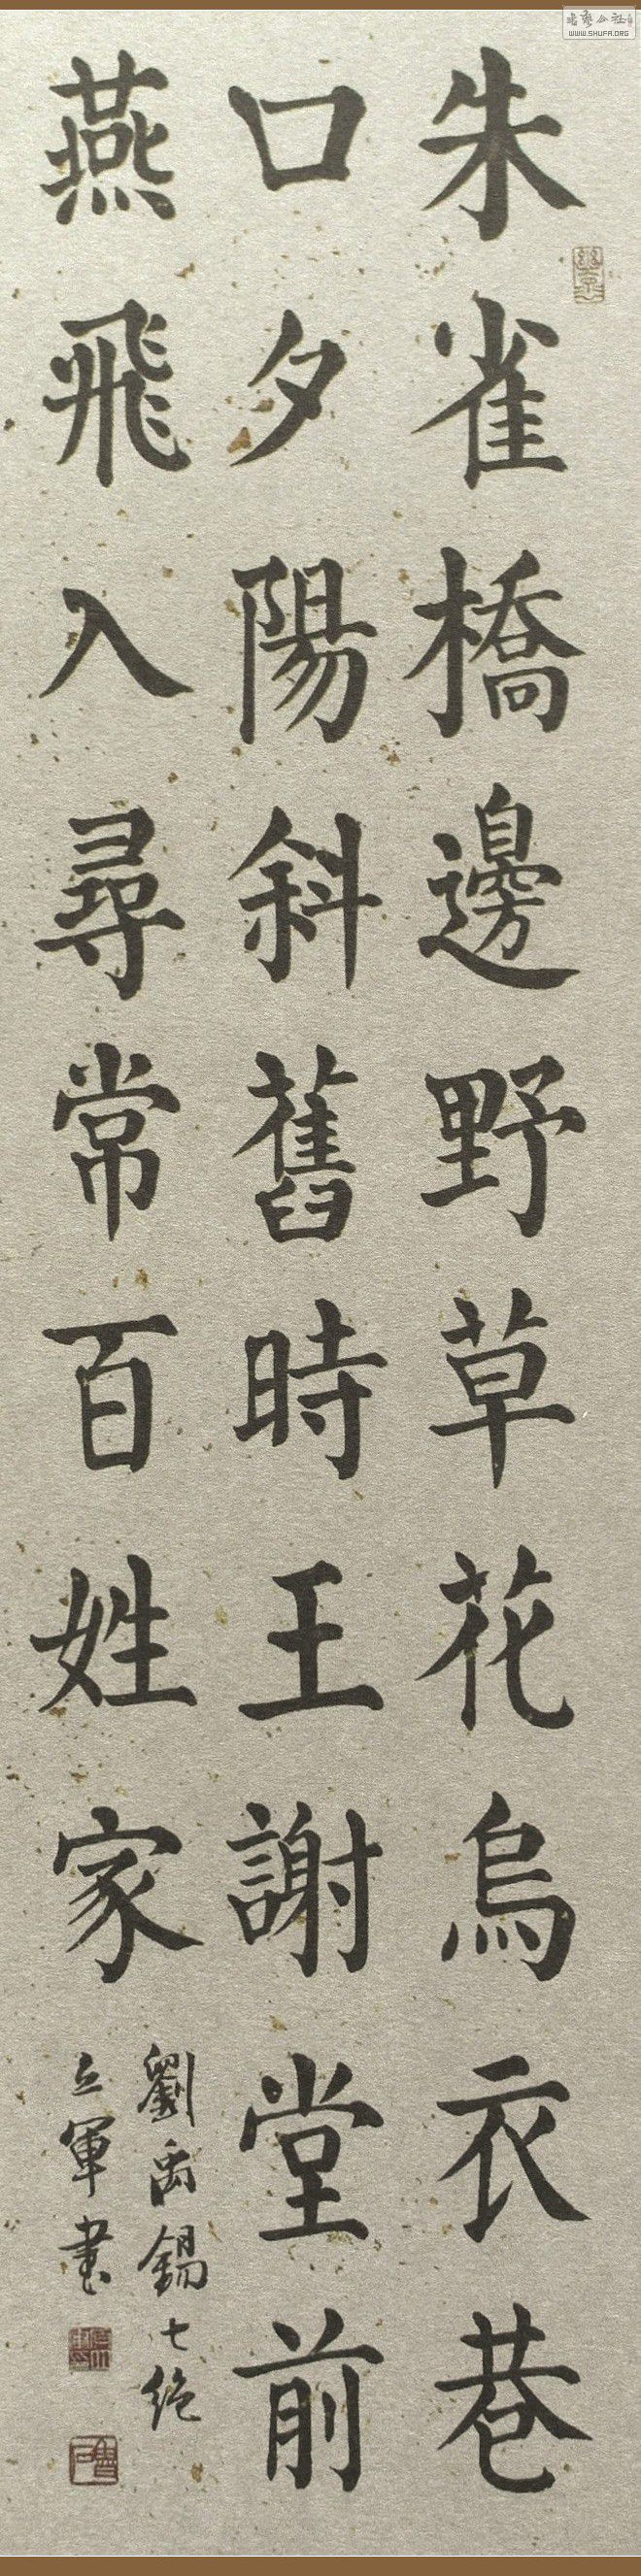 朱雀橋邊野草花烏衣巷
口夕陽斜舊時王謝堂前
燕飛入尋常百姓家
劉禹錫七絕
立軍書
WWW.SHUFA.ORG